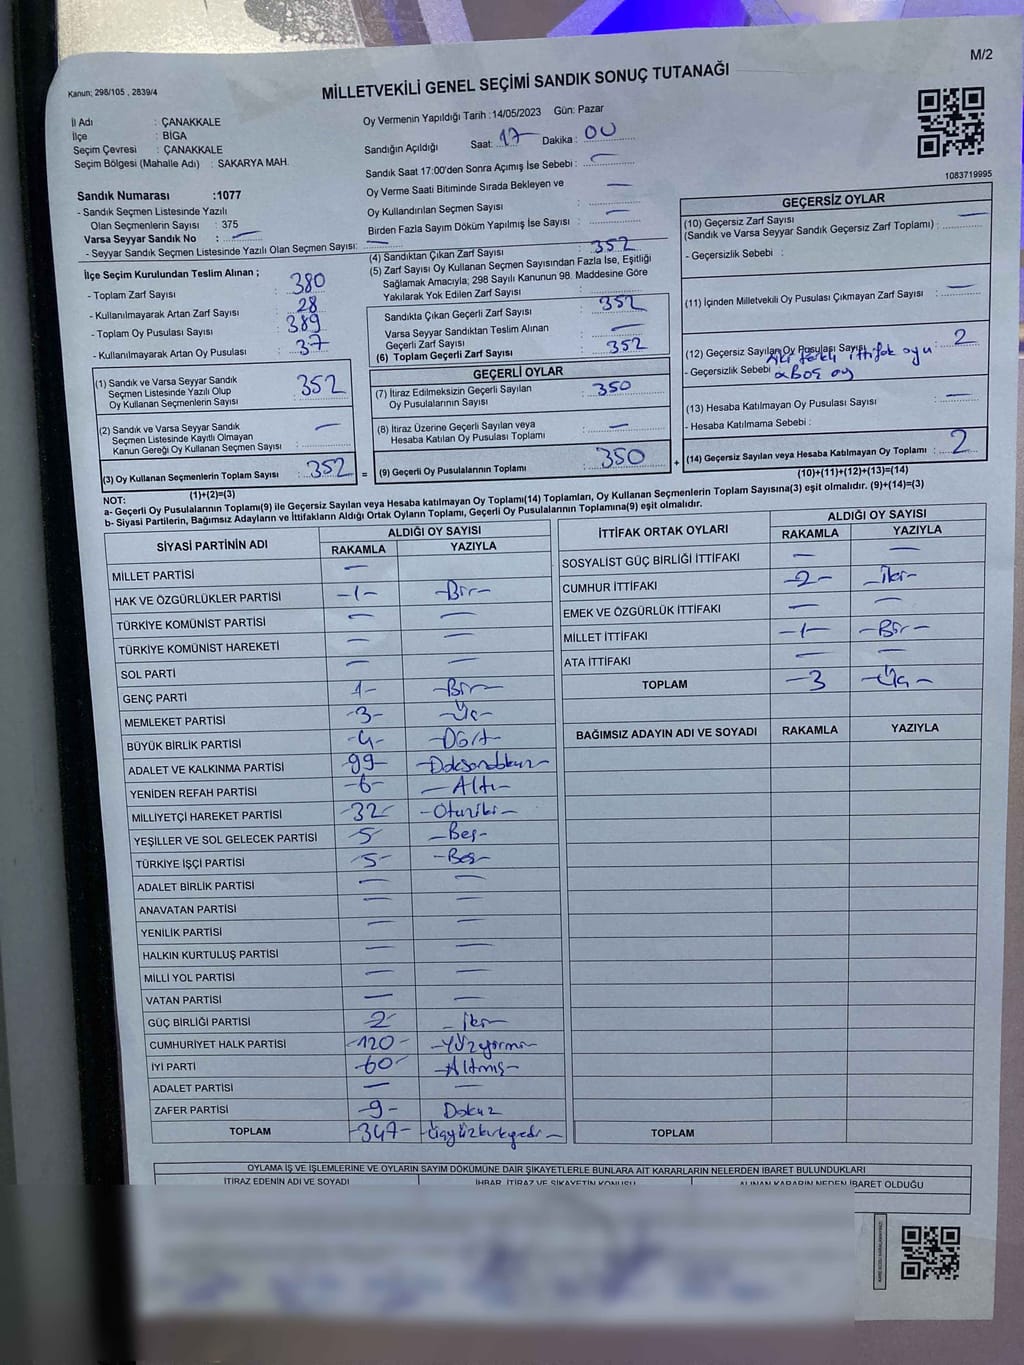 M/2
Kanun; 298/105 , 2839/4
MİLLETVEKİLİ GENEL SEÇİMİ SANDIK SONUÇ TUTANAĞI
İl Adı : ÇANAKKALE
İlçe : BİGA
Seçim Çevresi : ÇANAKKALE
Seçim Bölgesi (Mahalle Adı) : SAKARYA MAH.
Sandık Numarası :1077
- Sandık Seçmen Listesinde Yazılı
Olan Seçmenlerin Sayısı : 375
Varsa Seyyar Sandık No : —
- Seyyar Sandık Seçmen Listesinde Yazılı Olan Seçmen Sayısı: —
Oy Vermenin Yapıldığı Tarih :14/05/2023 Gün: Pazar
Sandığın Açıldığı Saat: 17 Dakika : 00
Sandık Saat 17:00'den Sonra Açımış İse Sebebi : —
Oy Verme Saati Bitiminde Sırada Bekleyen ve —
Oy Kullandırılan Seçmen Sayısı
Birden Fazla Sayım Döküm Yapılmış İse Sayısı : —
1083719995
İlçe Seçim Kurulundan Teslim Alınan ;
- Toplam Zarf Sayısı : 380
- Kullanılmayarak Artan Zarf Sayısı : 28
- Toplam Oy Pusulası Sayısı : 389
- Kullanılmayarak Artan Oy Pusulası : 37
(1) Sandık ve Varsa Seyyar Sandık
Seçmen Listesinde Yazılı Olup : 352
Oy Kullanan Seçmenlerin Sayısı
(2) Sandık ve Varsa Seyyar Sandık
Seçmen Listesinde Kayıtlı Olmayan —
Kanun Gereği Oy Kullanan Seçmen Sayısı :
(3) Oy Kullanan Seçmenlerin Toplam Sayısı : 352 =
(1)+(2)=(3)
(4) Sandıktan Çıkan Zarf Sayısı : 352
(5) Zarf Sayısı Oy Kullanan Seçmen Sayısından Fazla İse, Eşitliği
Sağlamak Amacıyla; 298 Sayılı Kanunun 98. Maddesine Göre
Yakılarak Yok Edilen Zarf Sayısı :
Sandıkta Çıkan Geçerli Zarf Sayısı : 352
Varsa Seyyar Sandıktan Teslim Alınan —
Geçerli Zarf Sayısı :
(6) Toplam Geçerli Zarf Sayısı : 352
GEÇERLİ OYLAR
(7) İtiraz Edilmeksizin Geçerli Sayılan : 350
Oy Pusulalarının Sayısı
(8) İtiraz Üzerine Geçerli Sayılan veya : —
Hesaba Katılan Oy Pusulası Toplamı
(9) Geçerli Oy Pusulalarının Toplamı : 350 +
GEÇERSİZ OYLAR
(10) Geçersiz Zarf Sayısı —
(Sandık ve Varsa Seyyar Sandık Geçersiz Zarf Toplamı) :
- Geçersizlik Sebebi :
(11) İçinden Milletvekili Oy Pusulası Çıkmayan Zarf Sayısı : —
(12) Geçersiz Sayılan Oy Pusulası Sayısı : 2
- Geçersizlik Sebebi iki farklı ittifak oyu
Boş oy
(13) Hesaba Katılmayan Oy Pusulası Sayısı : —
- Hesaba Katılmama Sebebi :
(14) Geçersiz Sayılan veya Hesaba Katılmayan Oy Toplamı : 2
(10)+(11)+(12)+(13)=(14)
NOT:
a- Geçerli Oy Pusulalarının Toplamı(9) ile Geçersiz Sayılan veya Hesaba katılmayan Oy Toplamı(14) Toplamları, Oy Kullanan Seçmenlerin Toplam Sayısına(3) eşit olmalıdır. (9)+(14)=(3)
b- Siyasi Partilerin, Bağımsız Adayların ve İttifakların Aldığı Ortak Oyların Toplamı, Geçerli Oy Pusulalarının Toplamına(9) eşit olmalıdır.
SİYASİ PARTİNİN ADI ALDIĞI OY SAYISI
RAKAMLA YAZIYLA
MİLLET PARTİSİ —
HAK VE ÖZGÜRLÜKLER PARTİSİ -1- -Bir-
TÜRKİYE KOMÜNİST PARTİSİ — —
TÜRKİYE KOMÜNİST HAREKETİ — —
SOL PARTİ — —
GENÇ PARTİ 1- -Bir-
MEMLEKET PARTİSİ -3- -Üç-
BÜYÜK BİRLİK PARTİSİ -4- -Dört-
ADALET VE KALKINMA PARTİSİ -99- -Doksandokuz-
YENİDEN REFAH PARTİSİ -6- -Altı-
MİLLİYETÇİ HAREKET PARTİSİ -32- -Otuziki-
YEŞİLLER VE SOL GELECEK PARTİSİ 5- -Beş-
TÜRKİYE İŞÇİ PARTİSİ -5- -Beş-
ADALET BİRLİK PARTİSİ — —
ANAVATAN PARTİSİ — —
YENİLİK PARTİSİ — —
HALKIN KURTULUŞ PARTİSİ — —
MİLLİ YOL PARTİSİ — —
VATAN PARTİSİ — —
GÜÇ BİRLİĞİ PARTİSİ -2- -İki-
CUMHURİYET HALK PARTİSİ -120- -Yüzyirmi-
İYİ PARTİ -60- -Altmış-
ADALET PARTİSİ — —
ZAFER PARTİSİ -9- Dokuz
TOPLAM -347- -Üçyüzkırkyedi-
İTTİFAK ORTAK OYLARI ALDIĞI OY SAYISI
RAKAMLA YAZIYLA
SOSYALİST GÜÇ BİRLİĞİ İTTİFAKI — —
CUMHUR İTTİFAKI -2- -İki-
EMEK VE ÖZGÜRLÜK İTTİFAKI — —
MİLLET İTTİFAKI -1- -Bir-
ATA İTTİFAKI — —
TOPLAM -3 -Üç-
BAĞIMSIZ ADAYIN ADI VE SOYADI RAKAMLA YAZIYLA
TOPLAM
OYLAMA İŞ VE İŞLEMLERİNE VE OYLARIN SAYIM DÖKÜMÜNE DAİR ŞİKAYETLERLE BUNLARA AİT KARARLARIN NELERDEN İBARET BULUNDUKLARI
İTİRAZ EDENİN ADI VE SOYADI İHBAR, İTİRAZ VE ŞİKAYETİN KONUSU ALINAN KARARIN NEDEN İBARET OLDUĞU